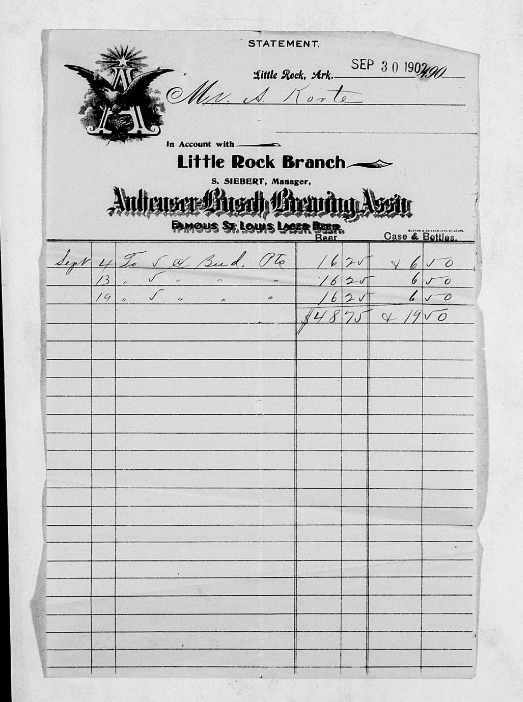 STATEMENT.
Little Rock, Ark. SEP 30 1902 190
Mr. A. Korte
In Account with
Little Rock Branch
S. SIEBERT, Manager,
Anheuser-Busch Brewing Ass'n
FAMOUS ST. LOUIS LAGER BEER.
Beer Case & Bottles.
Sept 4 To 5 Bud. Pts 16 25 & 6 50
13 " 5 " " " 16 25 6 50
19 " 5 " " " 16 25 6 50
$48 75 & 19 50